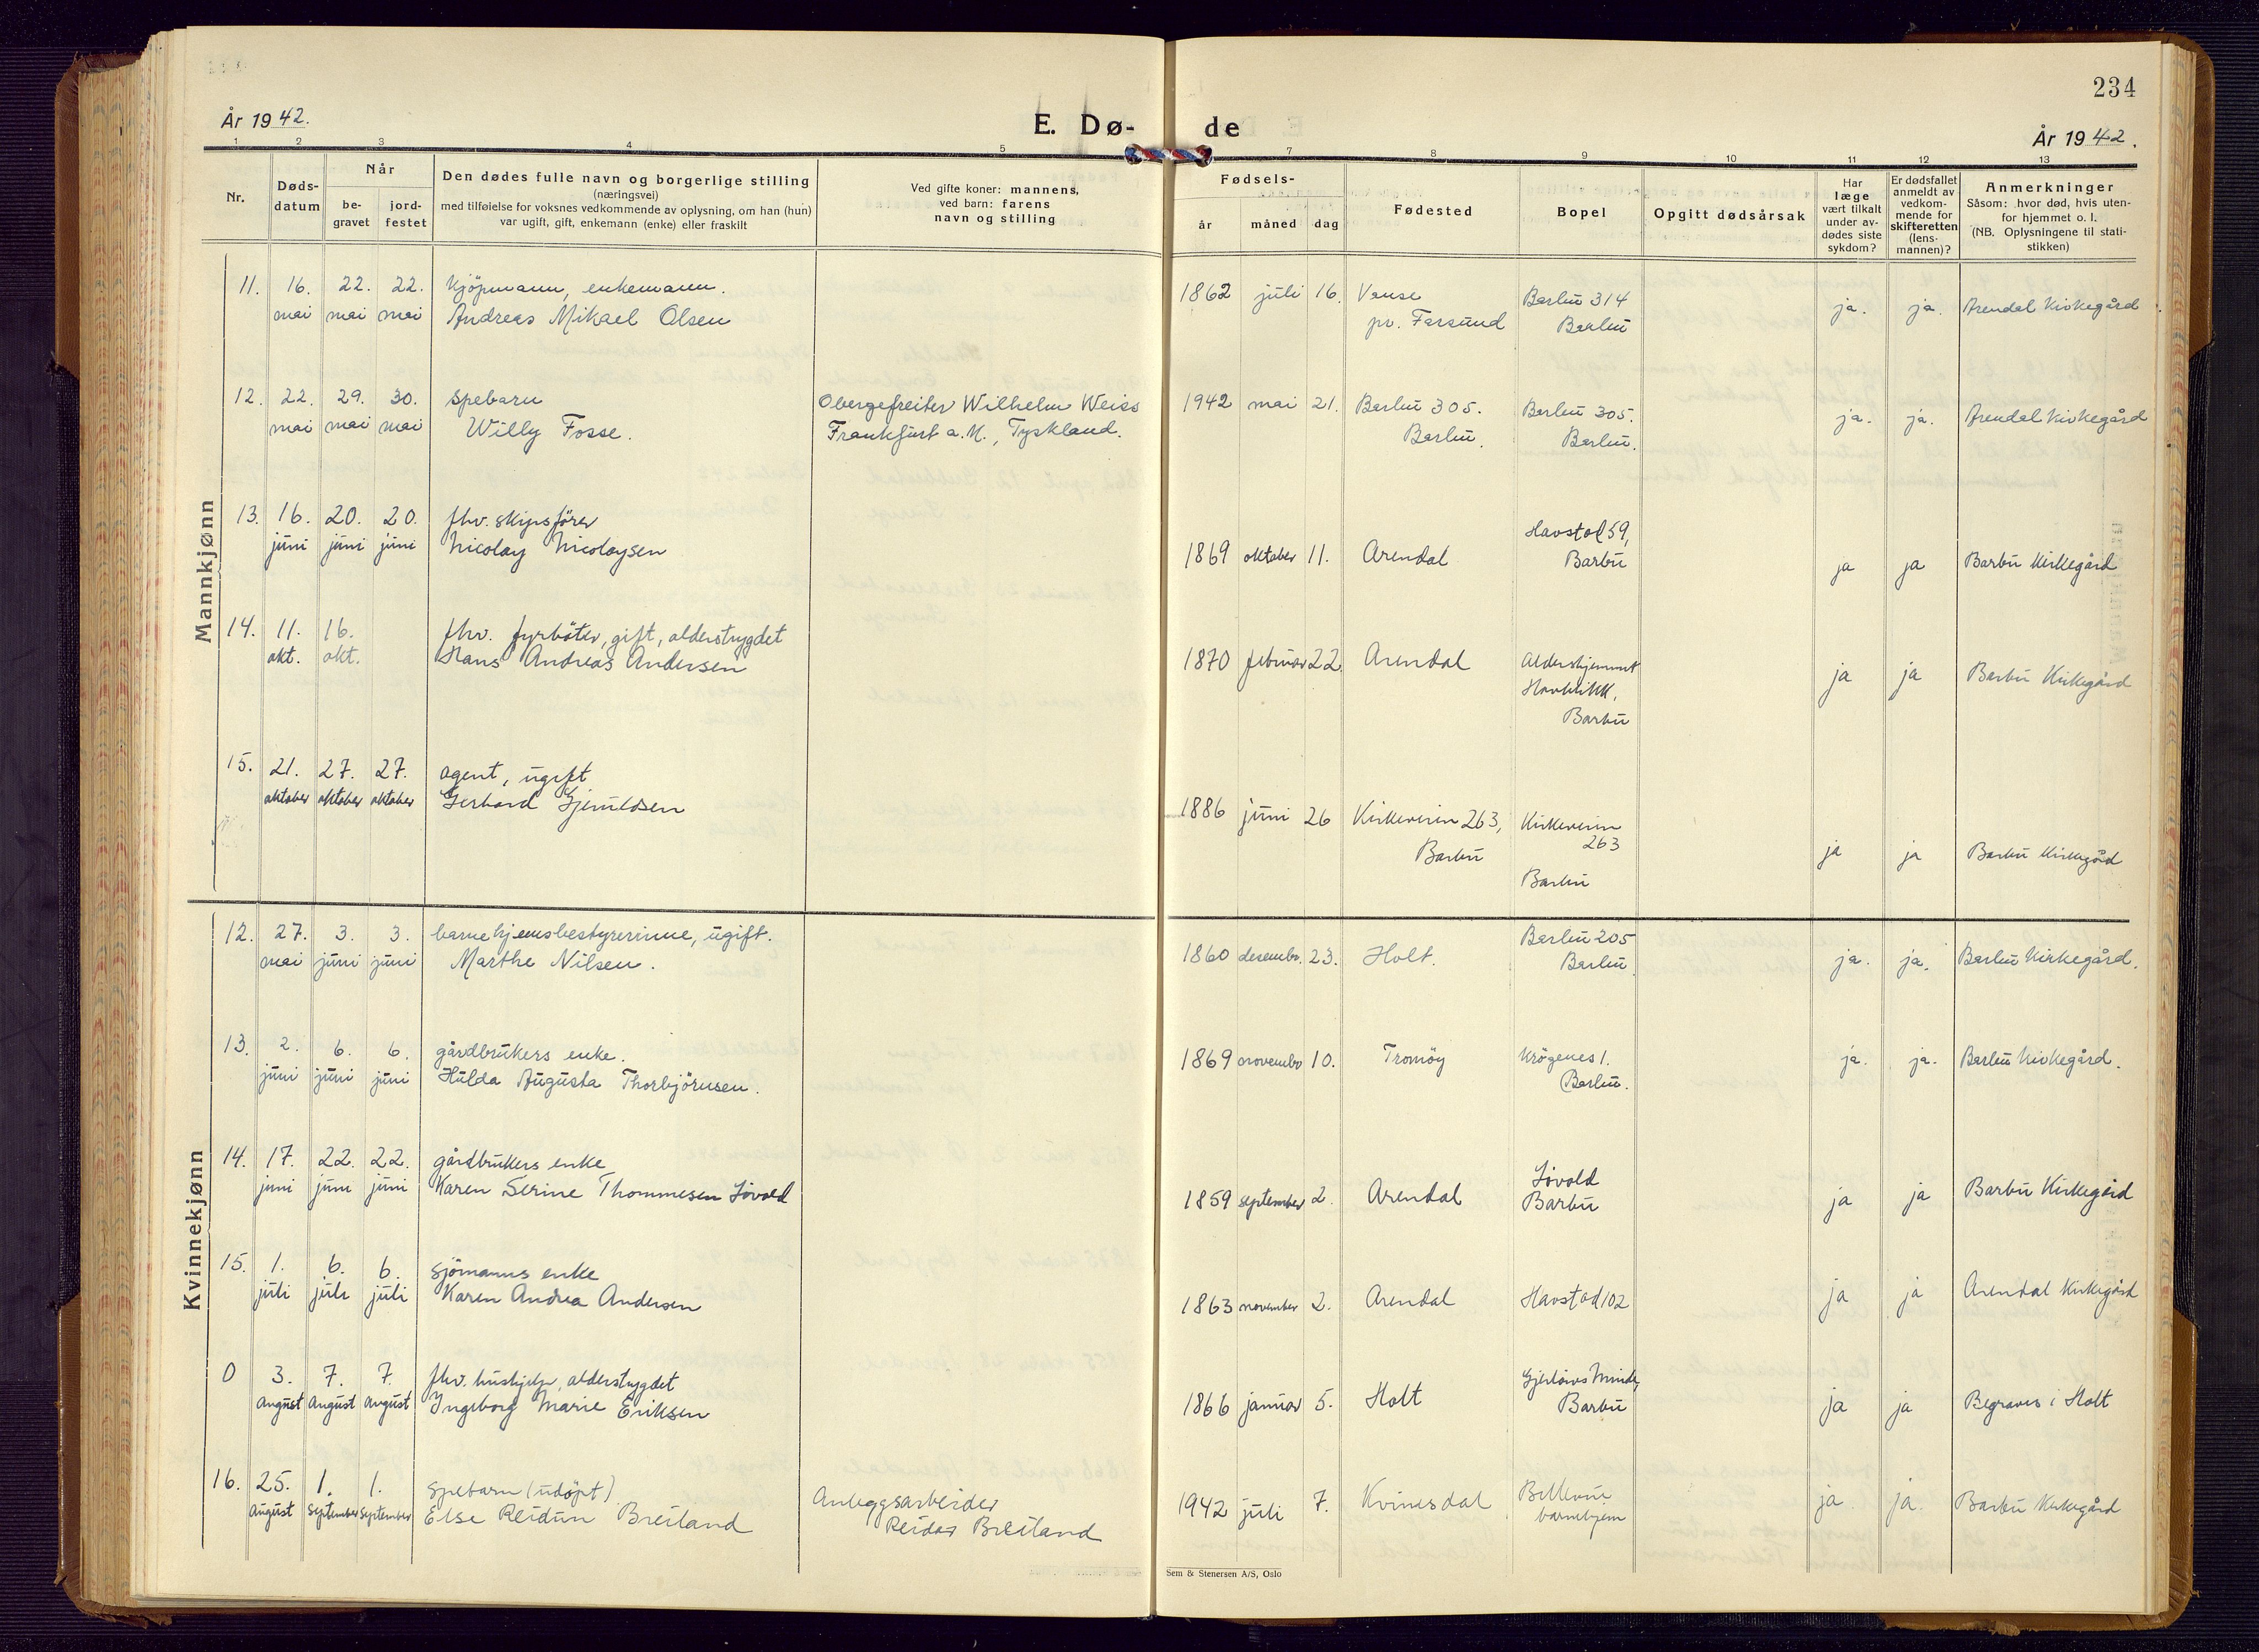 234
År 1942.
E. Dø-
de
År 1942.
1
2
3
4
5
7
8
9
10
11
12
13
Nr.
Døds-
datum
Når
be-
gravet
jord-
festet
Den dødes fulle navn og borgerlige stilling
(næringsvei)
med tilføielse for voksnes vedkommende av oplysning, om han (hun)
var ugift, gift, enkemann (enke) eller fraskilt
Ved gifte koner: mannens,
ved barn: farens
navn og stilling
Fødsels-
år
måned
dag
Fødested
Bopel
Opgitt dødsårsak
Har
læge
vært tilkalt
under av-
dødes siste
sykdom?
Er dødsfallet
anmeldt av
vedkom-
mende for
skifteretten
(lens-
mannen)?
Anmerkninger
Såsom: hvor død, hvis uten-
for hjemmet o. l.
(NB. Oplysningene til stati-
stikken)
Mannkjønn
11. 16. 22. 22. Kjöpmann, enkemann. 1862 juli 16. Vanse Barbu 314 ja. ja. Arendal Kirkegård
mai mai mai Andreas Mikael Olsen pr. Farsund Barbu
12. 22. 29. 30. Spebarn Obergefreiter Wilhelm Weiss 1942 mai 21. Barbu 305. Barbu 305. ja. ja. Arendal Kirkegård
mai mai mai Willy Fosse. Frankfurt a. M., Tyskland. Barbu. Barbu.
13. 16. 20. 20. fhv. skipsförer Havstad 59,
juni juni juni Nicolay Nicolaysen 1869 oktober 11. Arendal Barbu ja ja Barbu Kirkegård
14. 11. 16. fhv. fyrböter, gift, alderstrygdet
okt. okt. Hans Andreas Andersen 1870 februar 22. Arendal Aldershjemmet ja ja Barbu Kirkegård
Havblikk,
Barbu
15. 21. 27. 27. agent, ugift
oktober oktober oktober Gerhard Gjeruldsen 1886 juni 26 Kirkeveien 263, Kirkeveien
263
Barbu Barbu ja ja Barbu Kirkegård
Kvinnekjønn
12. 27. 3. 3. barnehjemsbestyrerinne, ugift. 1860 desembr. 23. Holt. Barbu 205 ja. ja. Barbu Kirkegård.
mai juni juni Marthe Nilsen. Barbu.
13. 2. 6. 6. gårdbrukers enke. 1869 novembr 10. Tromöy Krögenes 1. ja. ja. Barbu Kirkegård.
juni juni juni Hulda Augusta Thorbjörnsen. Barbu.
14. 17. 22. 22. gårdbrukers enke Lövold
juni juni juni Karen Serine Thommesen Lövold 1859 september 2. Arendal Barbu ja ja Barbu Kirkegård
15. 1. 6. 6. Sjömanns enke
juli juli juli Karen Andrea Andersen 1863 november 2. Arendal Havstad 102 ja ja Arendal Kirkegård
0 3. 7. 7. fhv. hushjelp, alderstrygdet Minde,
August August August Ingeborg Marie Eriksen 1866 januar 5. Holt Barbu ja ja Begraves i Holt
16. 25. 1. 1. Spebarn (udöpt) Anleggsarbeider Bellevue
August September September Else Reidun Breiland Reidar Breiland 1942 juli 7. Kvinesdal barnehjem ja. ja. Barbu Kirkegård
Sem & Stenersen A/S, Oslo